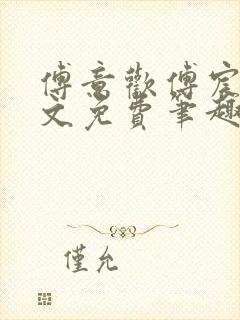 傅意歡傅宸
文免費筆趣
僅允